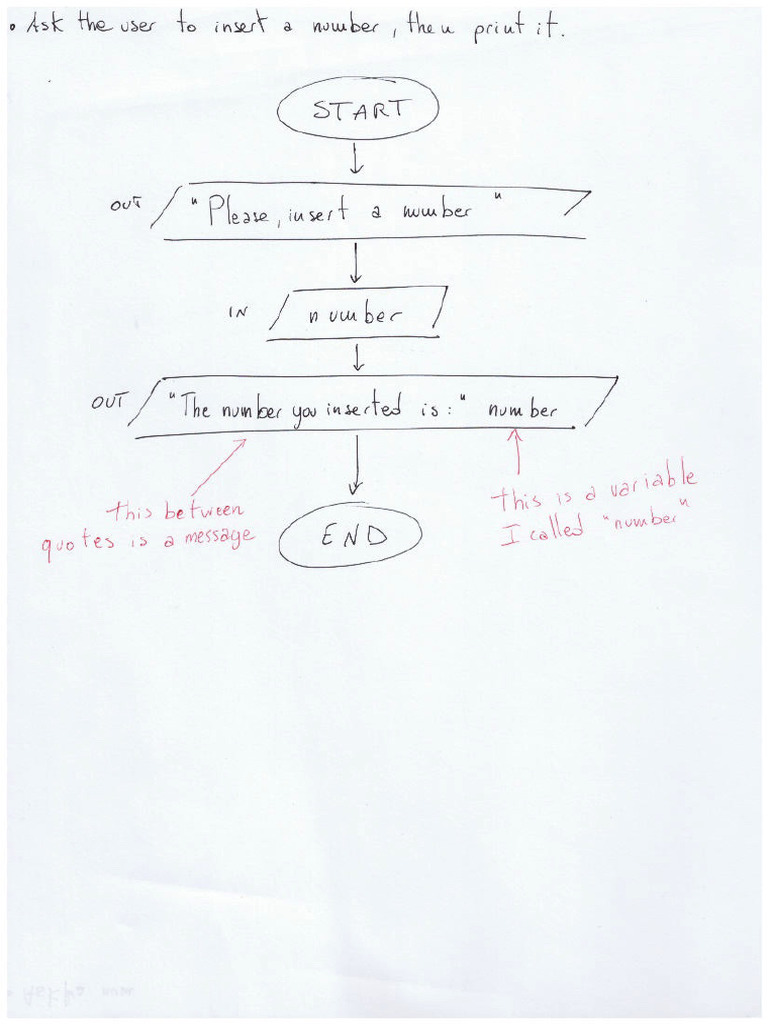 • Ask the user to insert a number, then print it.
START
OUT "Please, insert a number "
IN number
OUT "The number you inserted is:" number
this between
quotes is a message
this is a variable
I called "number"
END